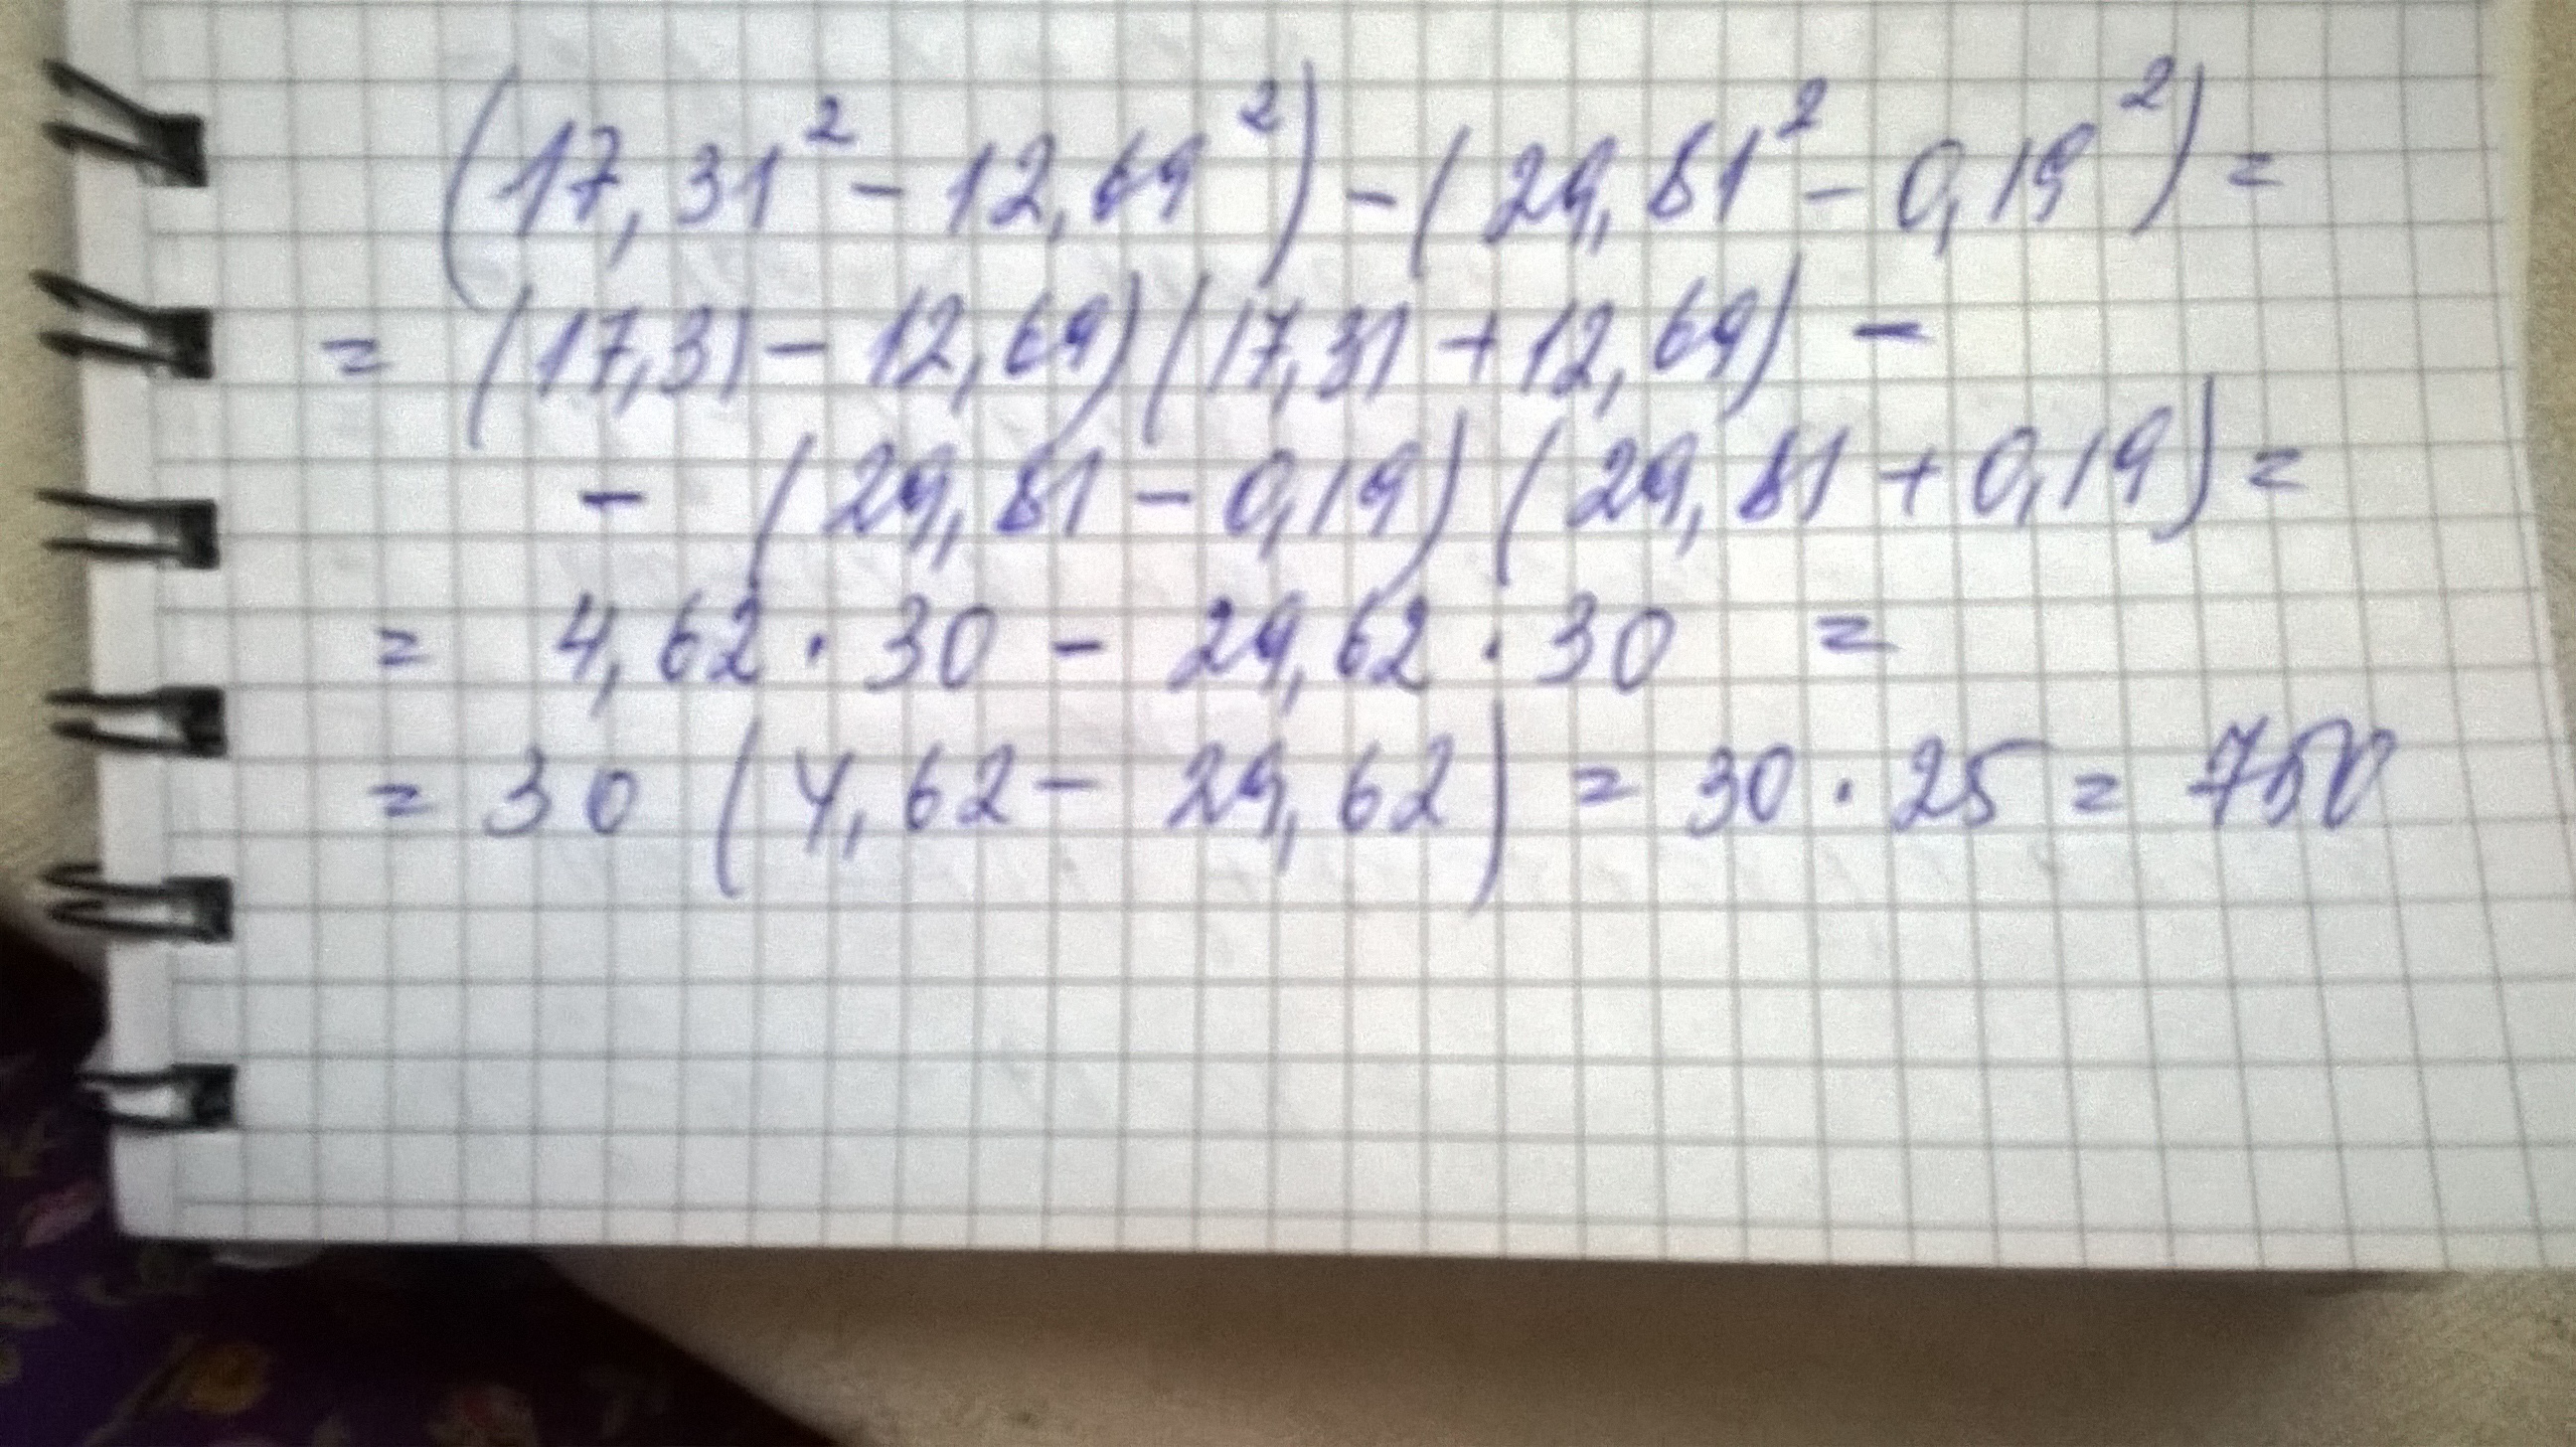 (17,31² - 12,69²) - (29,81² - 0,19²) =
= (17,31 - 12,69)(17,31 + 12,69) -
- (29,81 - 0,19)(29,81 + 0,19) =
= 4,62 · 30 - 29,62 · 30 =
= 30 (4,62 - 29,62) = 30 · 25 = 750